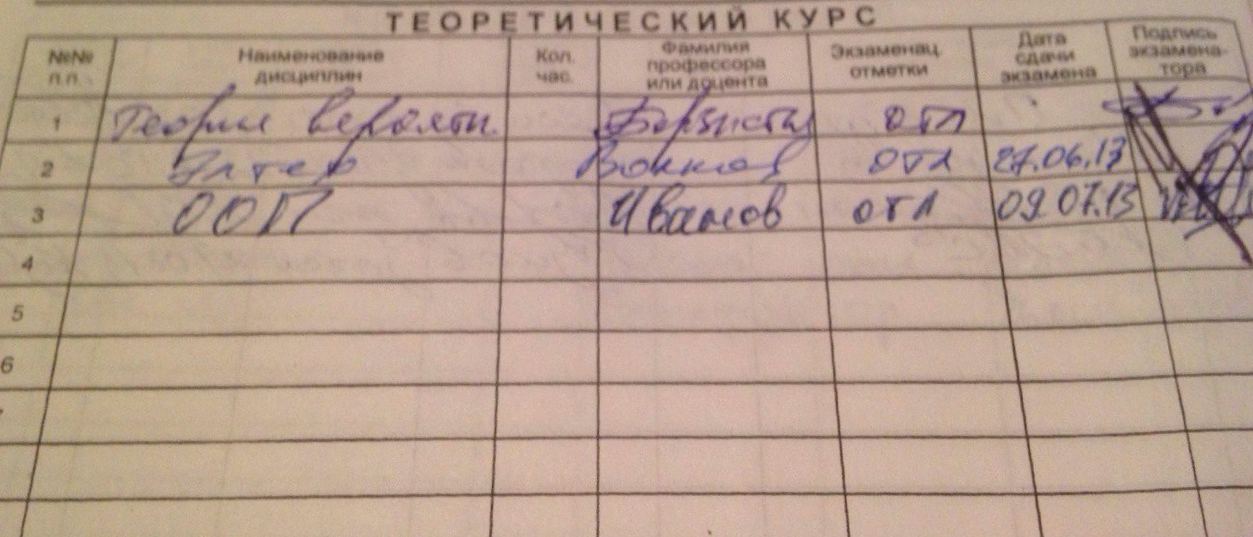 ТЕОРЕТИЧЕСКИЙ КУРС
№№ п.п. Наименование дисциплин Кол. час. Фамилия профессора или доцента Экзаменац. отметки Дата сдачи экзамена Подпись экзамена-тора
1 Теория вероятн. отл
2 отл 27.06.13
3 ООП Иванов отл 09.07.13
4
5
6